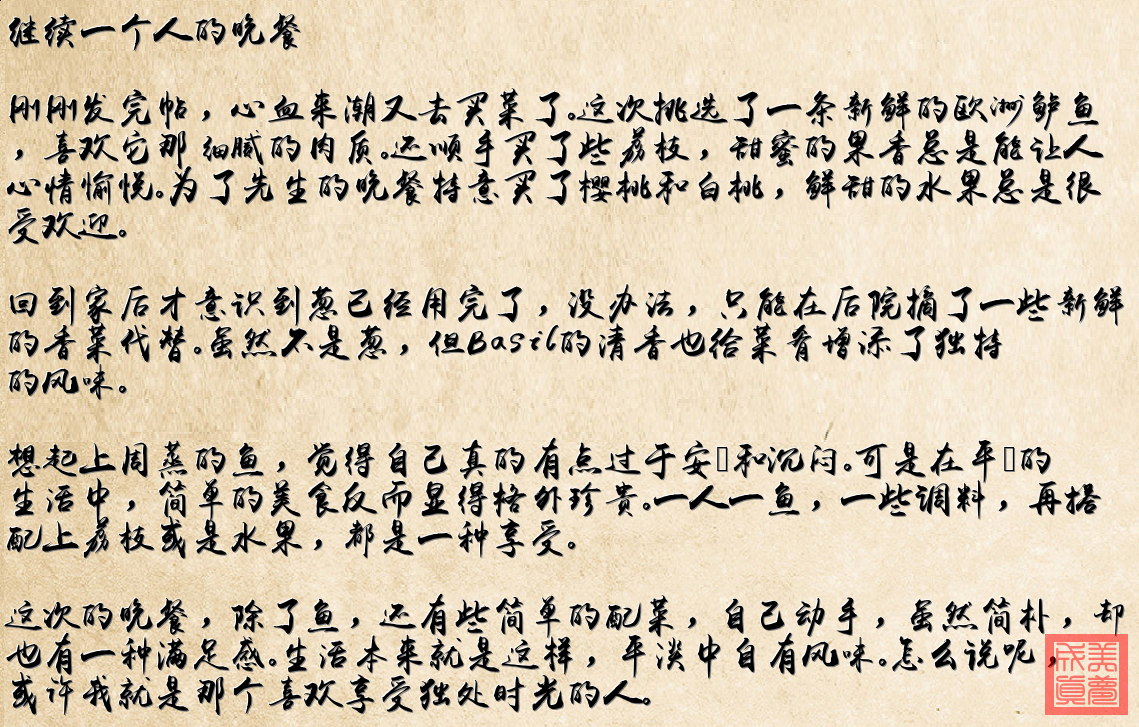 继续一个人的晚餐
刚刚发完帖，心血来潮又去买菜了。这次挑选了一条新鲜的欧洲鲈鱼
，喜欢它那细腻的肉质。还顺手买了些荔枝，甜蜜的果香总是能让人
心情愉悦。为了先生的晚餐特意买了樱桃和白桃，鲜甜的水果总是很
受欢迎。
回到家后才意识到葱已经用完了，没办法，只能在后院摘了一些新鲜
的香菜代替。虽然不是葱，但Basil的清香也给菜肴增添了独特
的风味。
想起上周蒸的鱼，觉得自己真的有点过于安和沉闷。可是在平的
生活中，简单的美食反而显得格外珍贵。一人一鱼，一些调料，再搭
配上荔枝或是水果，都是一种享受。
这次的晚餐，除了鱼，还有些简单的配菜，自己动手，虽然简朴，却
也有一种满足感。生活本来就是这样，平淡中自有风味。怎么说呢，
或许我就是那个喜欢享受独处时光的人。
美梦成真